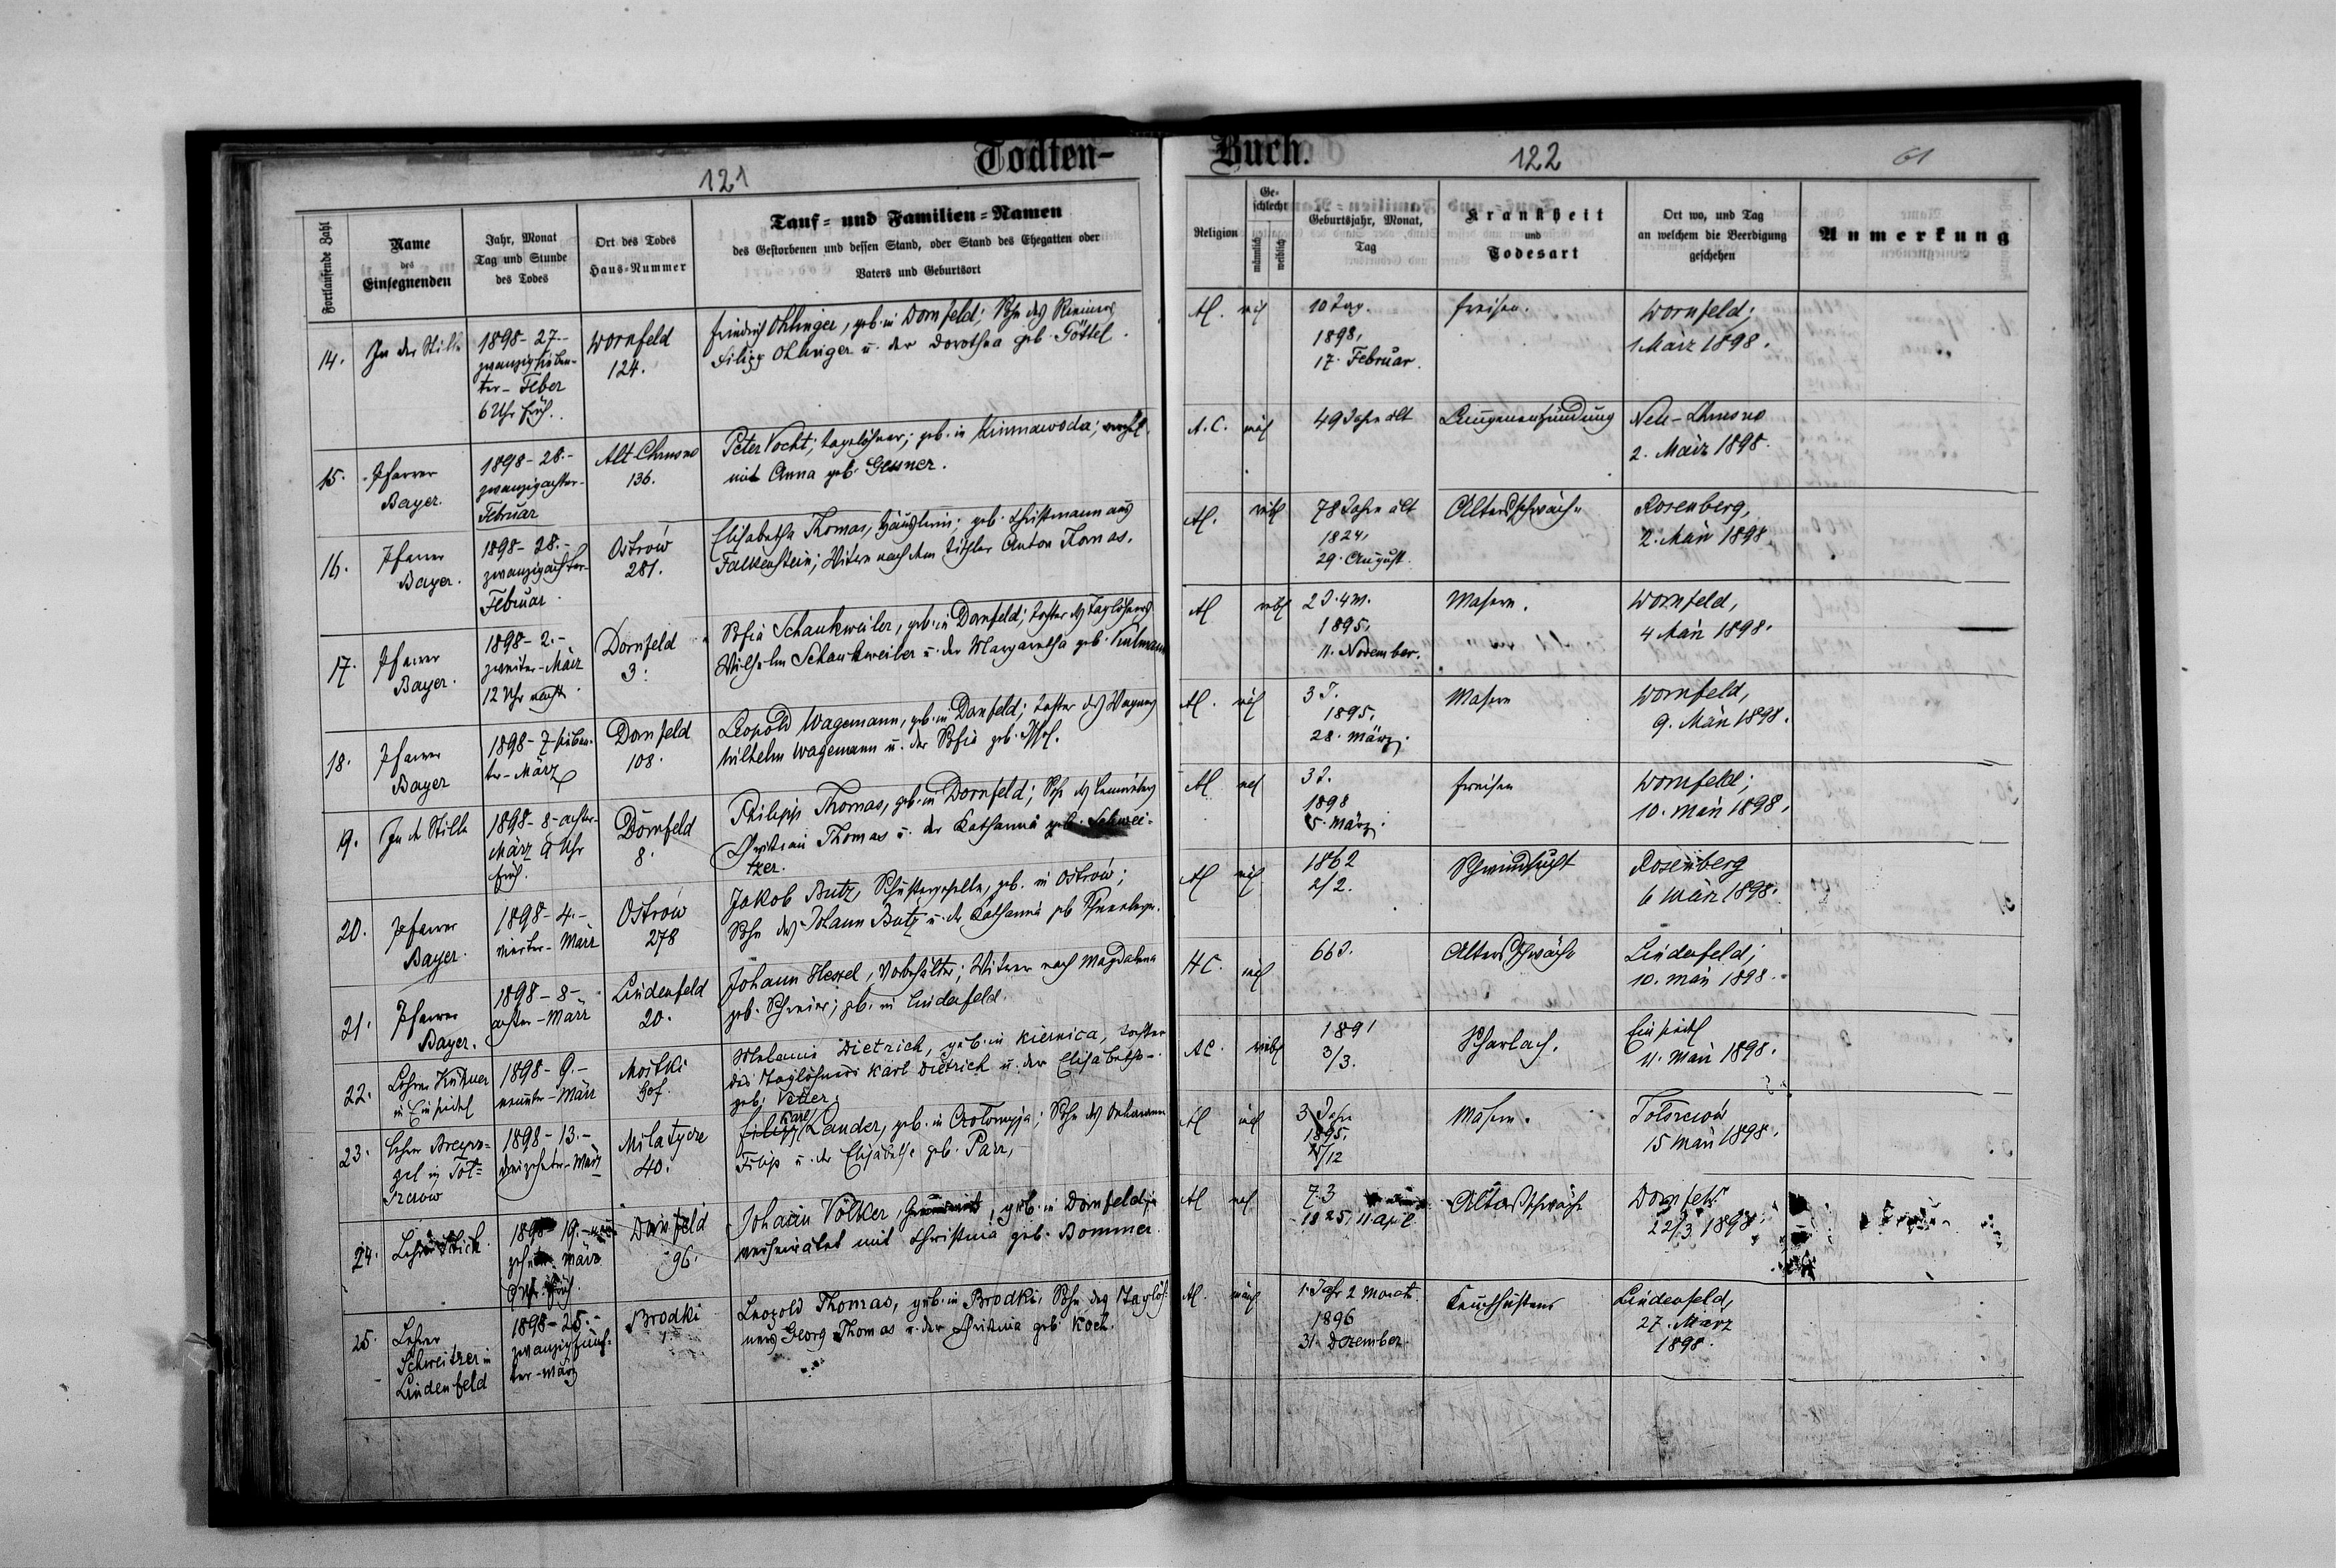 Todten-
Buch.
121
122
61
Fortlaufende Zahl
Name
des
Einsegnenden
Jahr, Monat
Tag und Stunde
des Todes
Ort des Todes
Haus-Nummer
Tauf- und Familien-Namen
des Gestorbenen und dessen Stand, oder Stand des Ehegatten oder
Vaters und Geburtsort
Religion
Ge-
schlecht
männlich
weiblich
Geburtsjahr, Monat,
Tag
Krankheit
und
Todesart
Ort wo, und Tag
an welchem die Beerdigung
geschehen
Anmerkung
14.
In der Stille
1898-27.-
zwanzigsieben-
ter-Feber
6 Uhr früh.
Dornfeld
124.
Friedrich Ohlinger, geb. in Dornfeld; Sohn des
Filipp Ohlinger u. der Dorothea geb. Göttel.
10 Tag.
1898,
17. Februar.
Fraisen.
Dornfeld;
1 März 1898.
15.
Pfarrer
Bayer.
1898-28.-
zwanzigachter-
Februar
Alt Chrusno
136.
Peter Vocht; Taglöhner; geb. in
mit Anna geb. Gessner.
A.C.
49 Jahre alt
Lungenentzündung
Neu-Chrusno
2. März 1898.
16.
Pfarrer
Bayer.
1898-28.-
zwanzigachter-
Februar.
Ostrow
281.
Elisabetha Thomas, Häuslerin; geb. Christmann aus
Falkenstein; Witwe nach dem Tischler Anton Thomas.
78 Jahre alt
1824,
29. August.
Altersschwäche
Rosenberg,
2. März 1898
17.
Pfarrer
Bayer.
1898-2.-
zweiter-März
12 Uhr nachts.
Dornfeld
3.
Sofia Schankweiler, geb. in Dornfeld; Tochter des Taglöhners
Wilhelm Schankweiler u. der Margaretha geb. Kulmann
2 J. 4 M.
1895.
11. November.
Masern.
Dornfeld,
4 März 1898.
18.
Pfarrer
Bayer
1898-7 sieben-
ter-März
Dornfeld
108.
Leopold Wagemann, geb. in Dornfeld; Tochter des Wagners
Wilhelm Wagemann u. der Sofia geb.
3 J.
1895.
28. März.
Masern
Dornfeld,
9. März 1898.
19.
In der Stille
1898-8-achter-
März 9 Uhr
früh.
Dornfeld
8.
Philipp Thomas, geb. in Dornfeld; Sohn des
Christian Thomas u. der Katharina geb. Schwei-
tzer.
3 J.
1898
5. März.
Fraisen
Dornfeld;
10. März 1898.
20.
Pfarrer
Bayer.
1898-4.-
vierter-März
Ostrow
278
Jakob Butz, Schustergeselle, geb. in Ostrów;
Sohn des Johann Butz u. der Katharina geb.
1862
2/2.
Schwindsucht
Rosenberg
6 März 1898.
21.
Pfarrer
Bayer.
1898-8-
achter-März
Lindenfeld
20.
Johann Hessel, Vorbehälter; Witwer nach Magdalena
geb. Schreier; geb. in Lindenfeld.
H C.
66 J.
Altersschwäche
Lindenfeld;
10. März 1898.
22.
Lehrer Kühner
in Einsiedel
1898-9.-
neunter-März
Mostki
Hof.
Melanie Dietrich, geb. in Kiernica, Tochter
des Taglöhners Karl Dietrich u. der Elisabetha
geb. Vetter.
A C.
1891
3/3.
Scharlach.
Einsiedel
11. März 1898.
23.
1898-13.-
dreizehnter-März
Milatycze
40.
Karl
Filipp Lander, geb. in Czolomyja; Sohn des
Filip u. der Elisabethe geb. Parr,
3 Jahr
1895.
/12
Masern.
Tolszczów
15 März 1898.
24.
Dornfeld
96.
Johann Völker, geb. in Dornfeld;
verheiratet mit Christina geb. Bommer.
73
1825, 11 April
Altersschwäche
Dornfeld
22/3 1898.
25.
Lehrer
Schweitzer in
Lindenfeld
1898-25.-
zwanzigfünf-
ter-März
Brodki
Leopold Thomas, geb. in Brodki, Sohn des Taglöh-
ners Georg Thomas u. der Christina geb. Koch.
1. Jahr 2 Monate
1896
31. Dezember.
Keuchhusten
Lindenfeld,
27. März
1898.